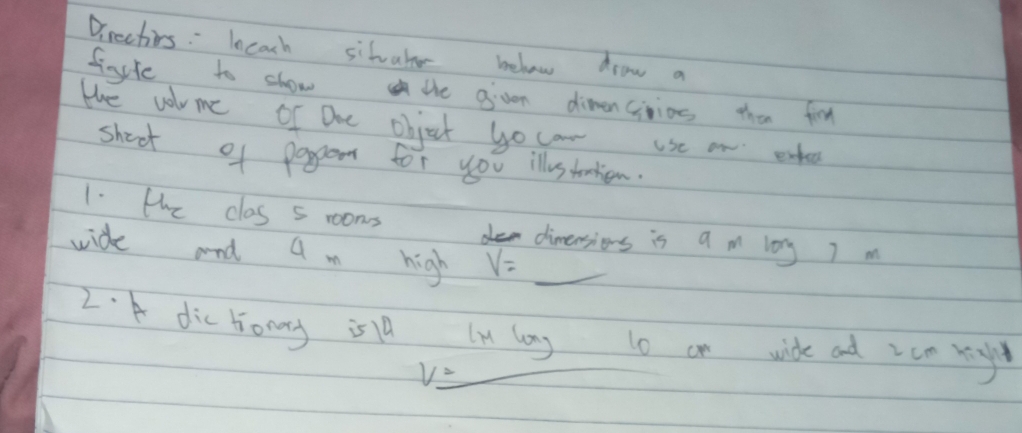 Directins:- Incach situation behaw draw a
figure to show the given dimensinions then find
the volume of One object yo can use an extra
sheet of for you illustration.
1. the clas s rooms dimensions is 9 m long 7 m
wide and 4 m high V= ___
2. A dictionary is 14 long 10 cm wide and 2 cm hight
V= ___